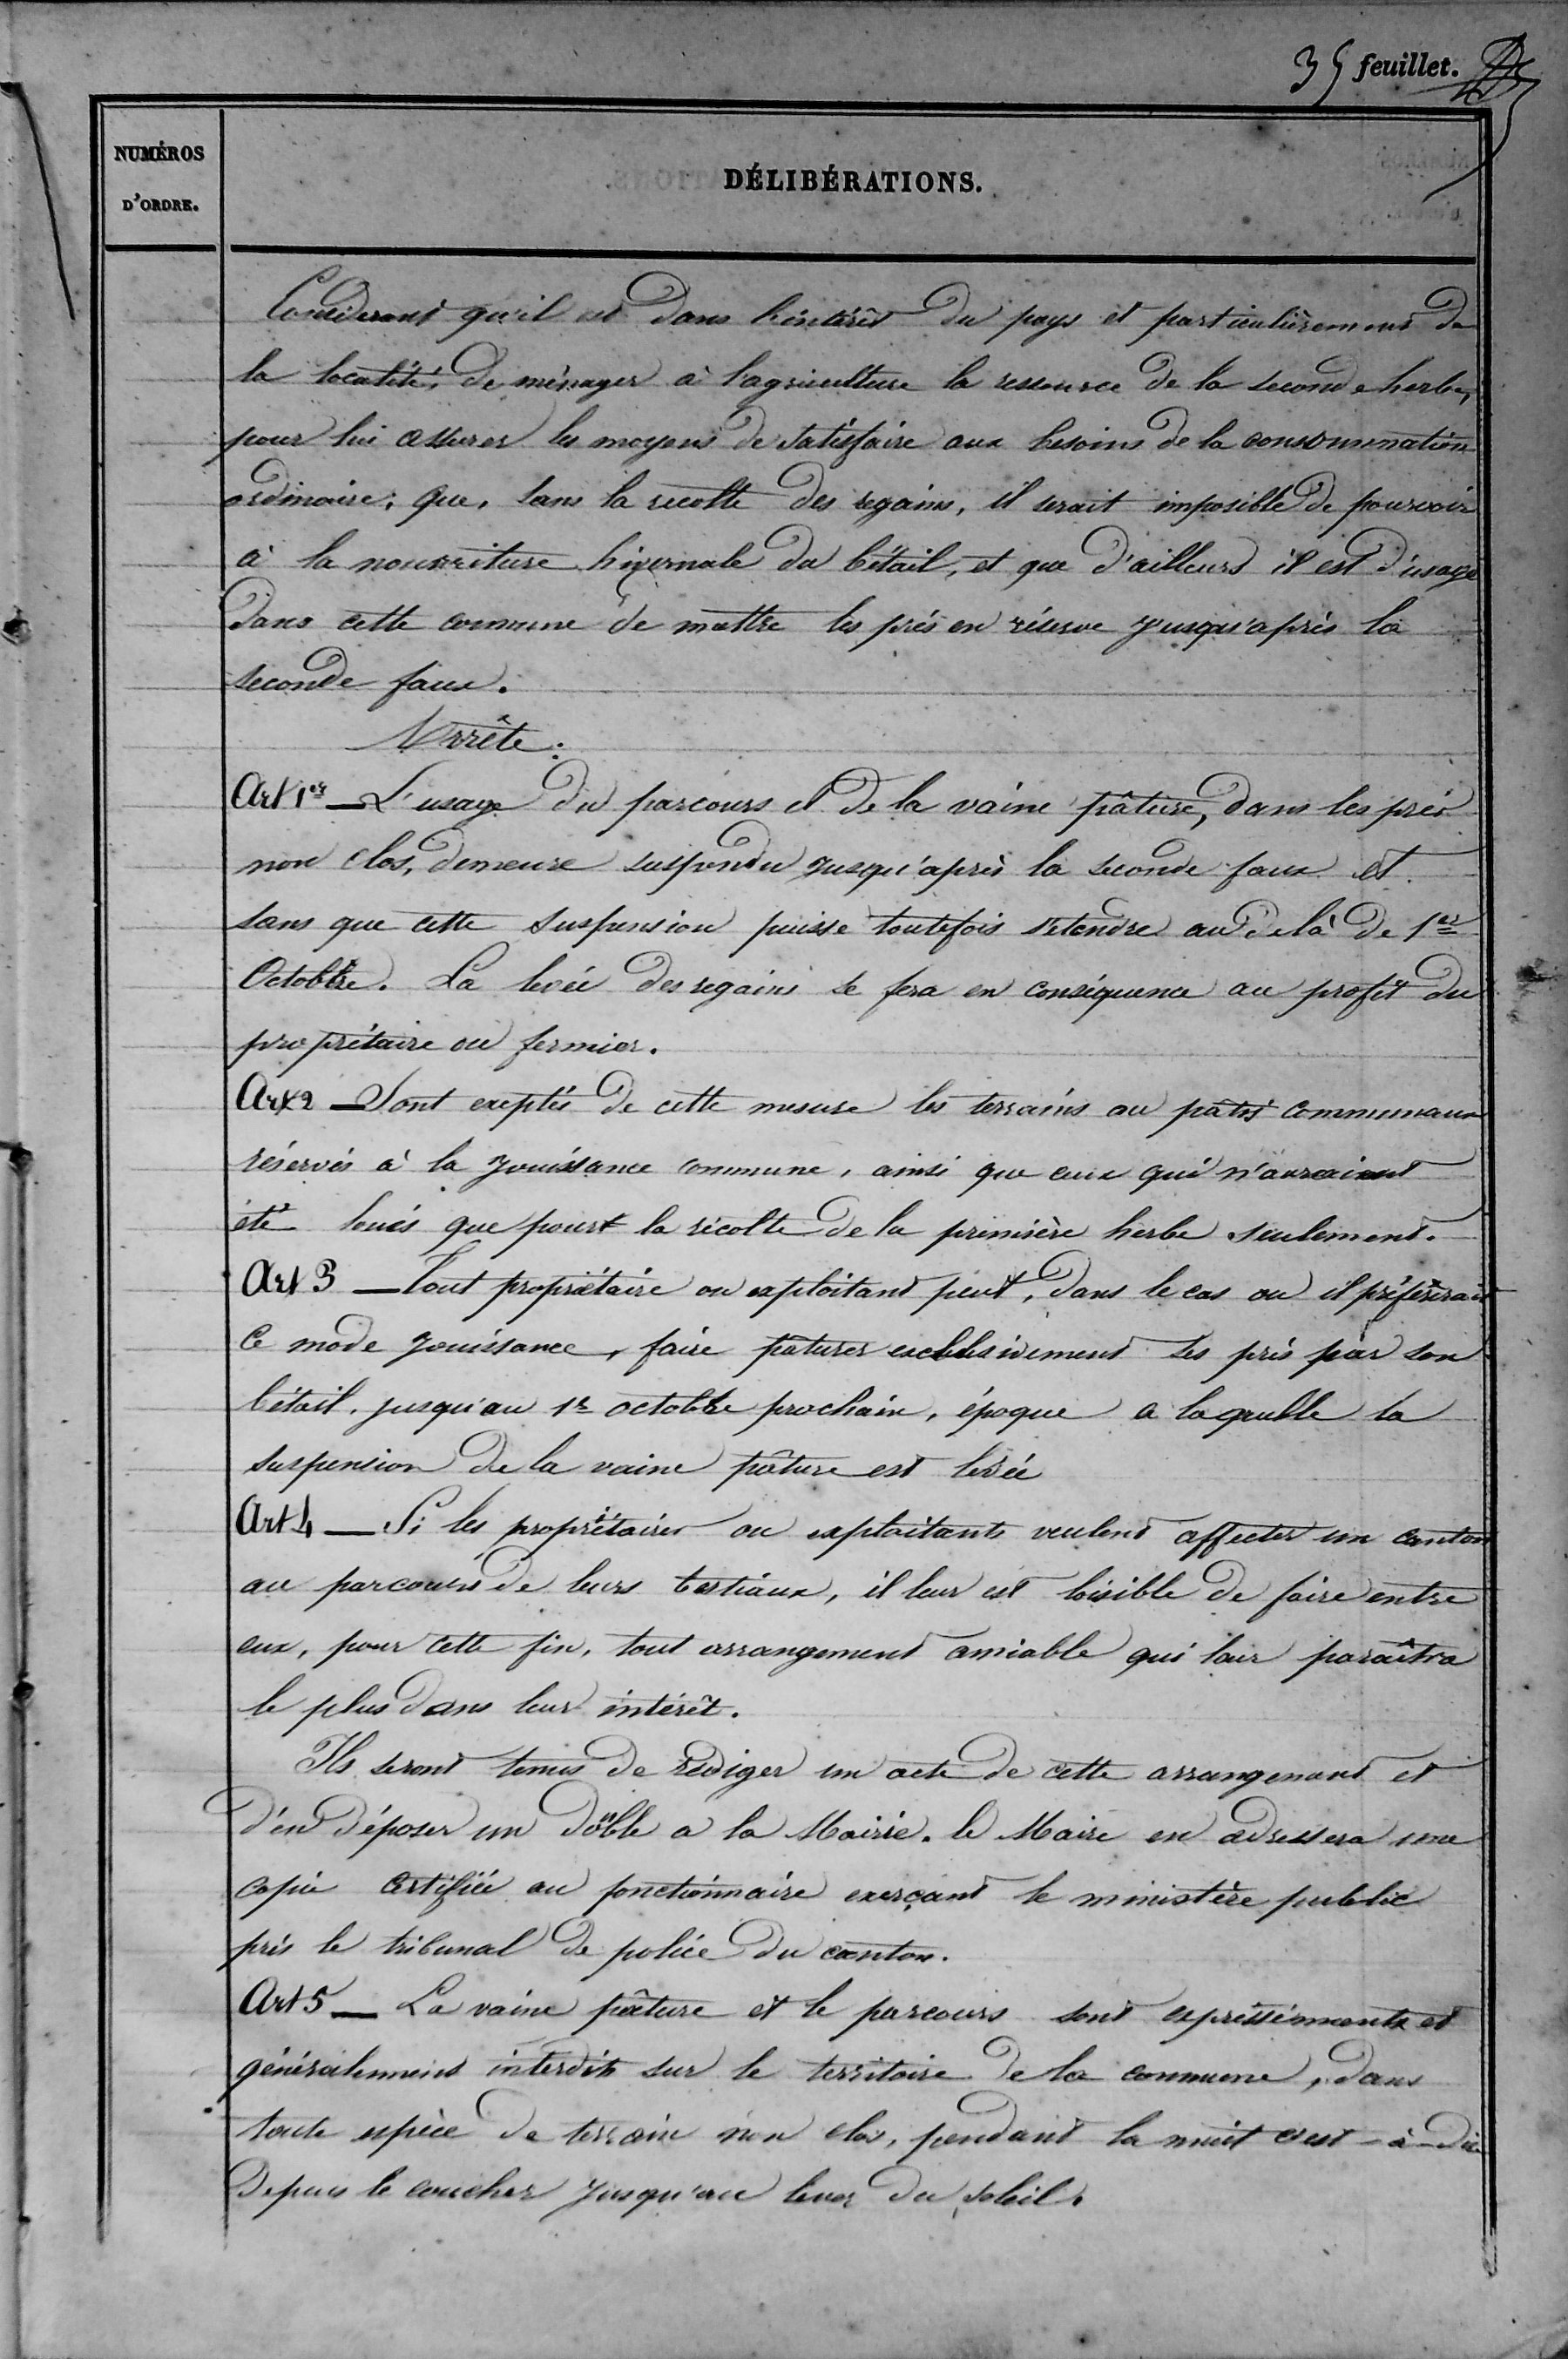 35 feuillet.
NUMÉROS
D'ORDRE.
DÉLIBÉRATIONS.
Considerant qu'il est dans l'intérêt du pays et particulièrement de
la localité, de ménager à l'agriculture la ressource de la seconde herbe,
pour lui assurer les moyens de satisfaire aux besoins de la consommation
ordinaire; que, sans la recolte des regains, il serait imposible de pourvoir
à la nourriture hivernale du bétail, et que d'ailleurs il est d'usage
dans cette commune de mettre les prés en réserve jusqu'après la
seconde faux.
Arrête:
Art 1er — L'usage du parcours et de la vaine pâture, dans les prés
non clos, demeure suspendu jusqu'après la seconde faux et
sans que cette suspension puisse toutefois s'etendre au delà de 1er
Octobre. La levée des regains se fera en conséquence au profit du
propriétaire ou fermier.
Art 2 — Sont exeptés de cette mesure les terrains au pâtis communaux
réservés à la jouissance commune, ainsi que ceux qui n'auraient
été loués que pour la récolte de la première herbe seulement.
Art 3 — Tout propriétaire ou exploitant peut, dans le cas ou il préférerait
ce mode jouissance, faire paturer exclusivement ses prés par son
bétail, jusqu'au 1er octobre prochain, époque a laquelle la
suspension de la vaine pâture est levée
Art 4 — Si les propriétaires ou exploitants veulent affecter un canton
au parcours de leurs bestiaux, il leur est loisible de faire entre
eux, pour cette fin, tout arrangement amiable qui leur paraîtra
le plus dans leur intérêt.
Ils seront tenus de rédiger un acte de cette arrangement et
d'en déposer un double a la Mairie. le Maire en adressera une
copie certifiée au fonctionnaire exerçant le ministère public
près le tribunal de police du canton.
Art 5 — La vaine pâture et le parcours sont expressémente et
généralement interdits sur le territoire de la commune, dans
toute espèce de terrain non clos, pendant la nuit c'est-à-dire
depuis le coucher jusqu'au lever du soleil.